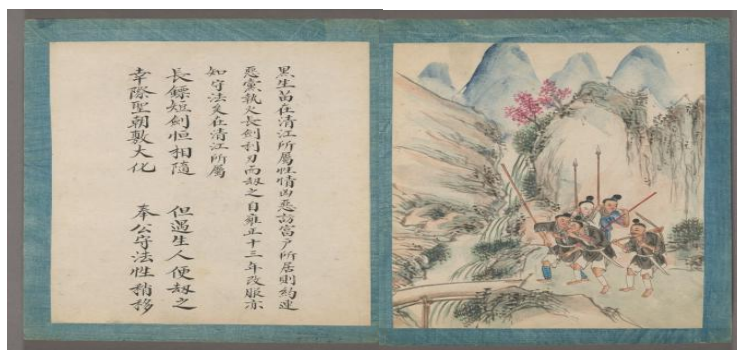 黑生苗在清江所屬性情凶惡訪富戶所居則約連
惡黨執火長劍利刃而刼之自雍正十三年改服亦
知守法交在清江所屬
長鏢短劍恒相隨 但遇生人便刼之
幸際聖朝敷大化 奉公守法性稍移